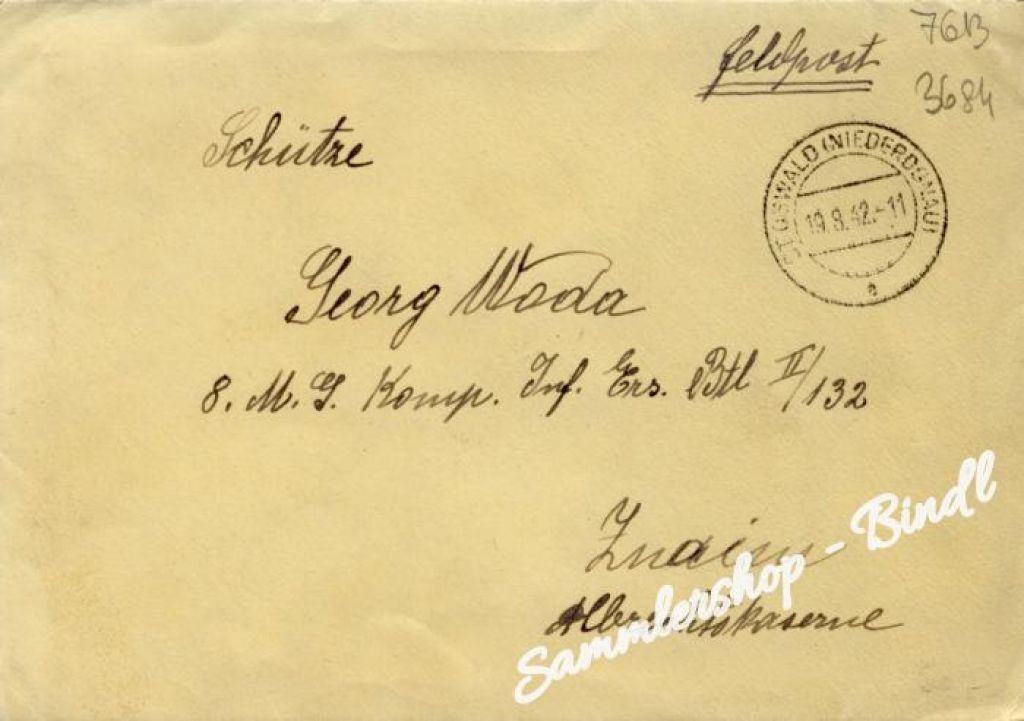 7613
3684
Feldpost
ST OSWALD (NIEDERDONAU)
19.8.42.-11
a
Schütze
Georg Woda
8. M. G. Komp. Inf. Ers. Btl II/132
Znaim
Albrechtskaserne
Sammlershop - Bindl